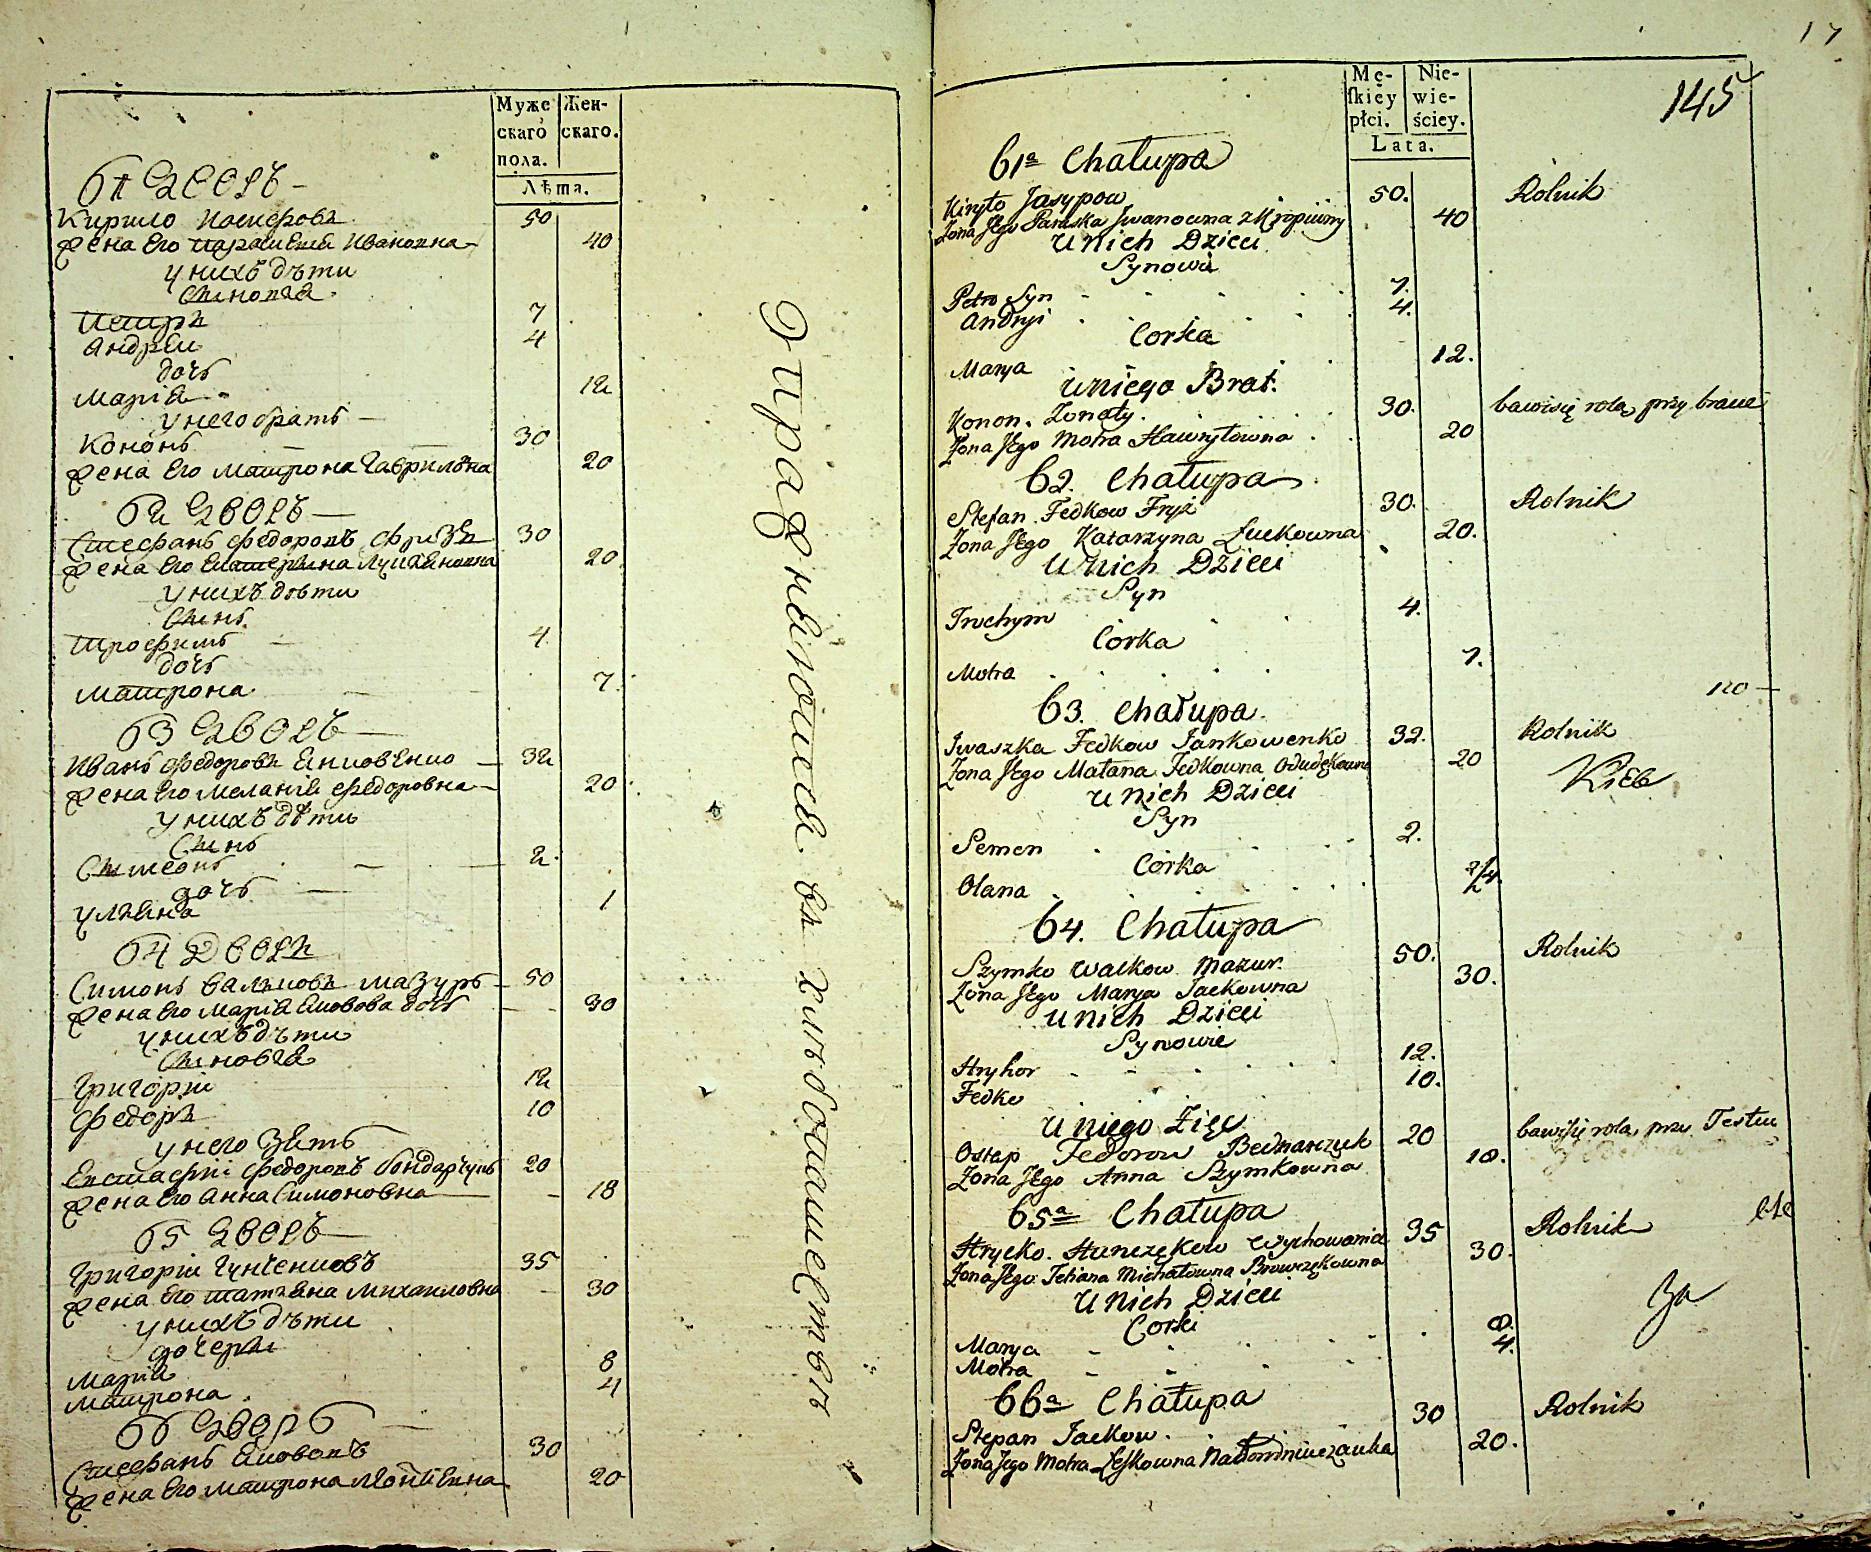 Муже
скаго
пола.
Жен-
скаго.
Лѣта.
61 Дворъ
Кирило Иосифовъ 50
Жена Его Параскевия Ивановна 40
у нихъ дѣти
Сыновья
Петръ 7
Андрей 4
дочь
Мария 12
у него братъ
Кононъ 30
Жена Его Матрона Гаврилòвна 20
62 Дворъ
Стефанъ Федоровъ Фризъ 30
Жена Его Екатерина Лукьяновна 20
у нихъ дѣти
Сынъ
Трофимъ 4
дочь
Матрона 7
63 Дворъ
Иванъ Федоровъ Янковенко 32
Жена Его Мелания Федоровна 20
у нихъ дѣти
Сынъ
Симеонъ 2
дочь
Ульяна 1
64 Дворъ
Симонъ Вальковъ Мазуръ 50
Жена Его Мария Яковова дочь 30
у нихъ дѣти
Сыновья
Григорій 12
Федоръ 10
у него Зять
Евстафій Федоровъ Бондарчукъ 20
Жена Его Анна Симоновна 18
65 Дворъ
Григорій 35
Жена Его Татьяна Михайловна 30
у нихъ дѣти
дочери
Мария 8
Матрона 4
66 Дворъ
Стефанъ Якововъ 30
Жена Его Матрона 20
Упражняющися въ хлѣбопашествѣ
17
145
Mę-
ſkiey
płci.
Nie-
wie-
ściey.
Lata.
61a Chałupa
Kiryło Jasypow 50. Rolnik
Żona Jego Paraska Jwanowna z Kropiwny 40
U Nich Dzieci
Synowie
Petro Syn 7.
Andryi 4.
Corka
Marya 12.
U niego Brat.
Konon. Żonaty. 30. bawisię rolą przy bracie
Żona Jego Motra Hawryłowna 20
62. Chałupa
Stefan Fedkow Fryź 30. Rolnik
Żona Jego Katarzyna Łuckowna 20.
U Nich Dzieci
Syn
Trochym 4.
Corka
Motra 7.
120
63. Chałupa
Jwaszka Fedkow Jankowenko 32. Rolnik
Żona Jego Małana Fedkowna 20
U Nich Dzieci
Syn
Semen 2.
Corka
Olana
64. Chałupa
Szymko Walkow Mazur. 50. Rolnik
Żona Jego Marya Jackowna 30.
U Nich Dzieci
Synowie
Hryhor 12.
Fedko 10.
U niego Zięc
Ostap Fedorow Bednarczuk 20 bawisię rolą przy Testiu
Żona Jego Anna Szymkowna 18.
65a Chałupa
Hrycko. Hanczękow Wychowanie 35 Rolnik
Żona Jego Tetiana Michałowna Browczękowna 30.
U Nich Dzieci
Corki
Marya 8.
Motra 4.
За
66a Chałupa
Stepan Jackow. 30 Rolnik
Żona Jego Motra Leſkowna 20.